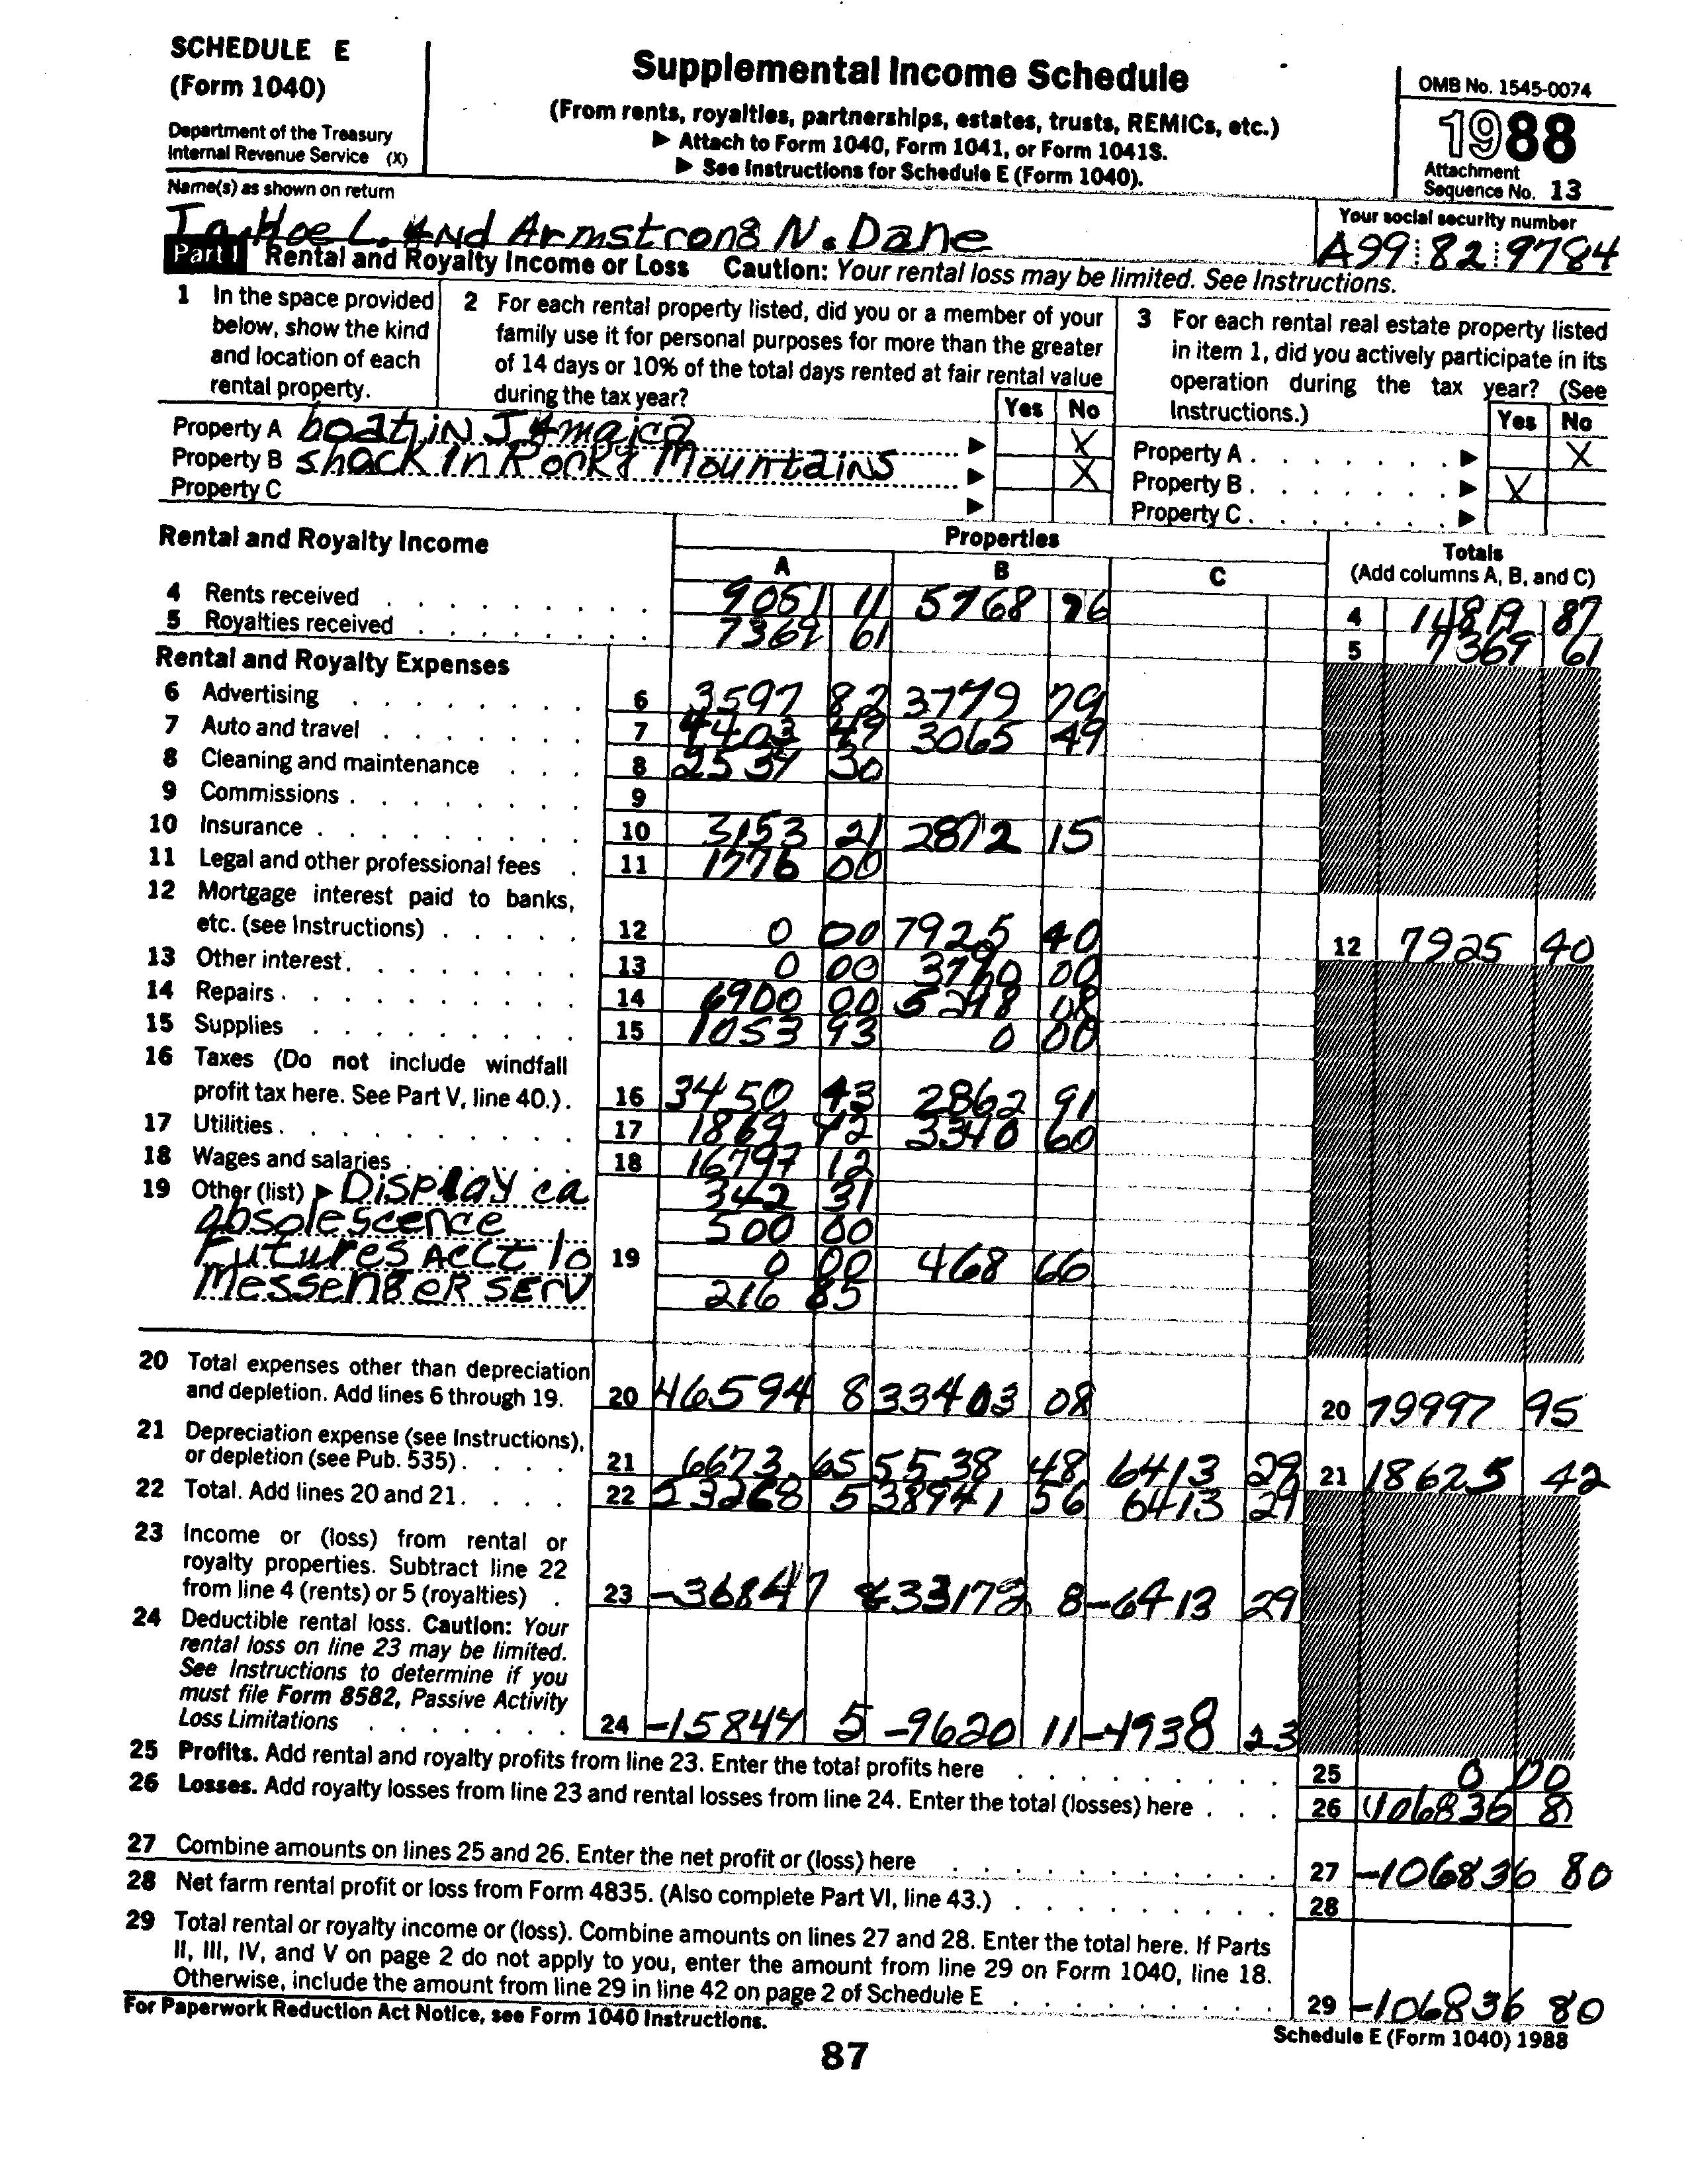 SCHEDULE E
(Form 1040)
Department of the Treasury
Internal Revenue Service (X)
Supplemental Income Schedule
(From rents, royalties, partnerships, estates, trusts, REMICs, etc.)
▶ Attach to Form 1040, Form 1041, or Form 1041S.
▶ See Instructions for Schedule E (Form 1040).
OMB No. 1545-0074
1988
Attachment
Sequence No. 13
Name(s) as shown on return
Your social security number
L. And Armstrong N. Dane
A99 82 9784
Part I Rental and Royalty Income or Loss Caution: Your rental loss may be limited. See Instructions.
1 In the space provided below, show the kind and location of each rental property.
2 For each rental property listed, did you or a member of your family use it for personal purposes for more than the greater of 14 days or 10% of the total days rented at fair rental value during the tax year?
3 For each rental real estate property listed in item 1, did you actively participate in its operation during the tax year? (See Instructions.)
Yes No
Yes No
Property A boat, in Jamaica ▶ X
Property A ▶ X
Property B shack in Rocky Mountains ▶ X
Property B ▶ X
Property C ▶
Property C ▶
Rental and Royalty Income
Properties
Totals
A B C
(Add columns A, B, and C)
4 Rents received 9051 11 5768 76 4 14819 87
5 Royalties received 7369 61 5 7369 61
Rental and Royalty Expenses
6 Advertising 6 3597 82 3779 79
7 Auto and travel 7 4403 49 3065 49
8 Cleaning and maintenance 8 2534 30
9 Commissions 9
10 Insurance 10 3153 21 2872 15
11 Legal and other professional fees 11 1776 00
12 Mortgage interest paid to banks,
etc. (see Instructions) 12 0 00 7925 40 12 7925 40
13 Other interest 13 0 00 3790 00
14 Repairs 14 6900 00 5298 08
15 Supplies 15 1053 93 0 00
16 Taxes (Do not include windfall
profit tax here. See Part V, line 40.) 16 3450 43 2862 91
17 Utilities 17 1869 42 3340 60
18 Wages and salaries 18 16797 12
19 Other (list) ▶ Display ca 342 31
absolescence 500 00
Futures Acct lo 19 0 00 468 66
Messenger Serv 216 85
20 Total expenses other than depreciation
and depletion. Add lines 6 through 19. 20 46594 8 33403 08 20 79997 95
21 Depreciation expense (see Instructions),
or depletion (see Pub. 535) 21 6673 65 5538 48 6413 29 21 18625 42
22 Total. Add lines 20 and 21 22 53268 5 38941 56 6413 29
23 Income or (loss) from rental or
royalty properties. Subtract line 22
from line 4 (rents) or 5 (royalties) 23 -36847 33172 8 -6413 29
24 Deductible rental loss. Caution: Your
rental loss on line 23 may be limited.
See Instructions to determine if you
must file Form 8582, Passive Activity
Loss Limitations 24 -15844 5 -9620 11 -4938 23
25 Profits. Add rental and royalty profits from line 23. Enter the total profits here 25 0 00
26 Losses. Add royalty losses from line 23 and rental losses from line 24. Enter the total (losses) here 26 (106836 8)
27 Combine amounts on lines 25 and 26. Enter the net profit or (loss) here 27 -106836 80
28 Net farm rental profit or loss from Form 4835. (Also complete Part VI, line 43.) 28
29 Total rental or royalty income or (loss). Combine amounts on lines 27 and 28. Enter the total here. If Parts
II, III, IV, and V on page 2 do not apply to you, enter the amount from line 29 on Form 1040, line 18.
Otherwise, include the amount from line 29 in line 42 on page 2 of Schedule E 29 -106836 80
For Paperwork Reduction Act Notice, see Form 1040 Instructions.
Schedule E (Form 1040) 1988
87